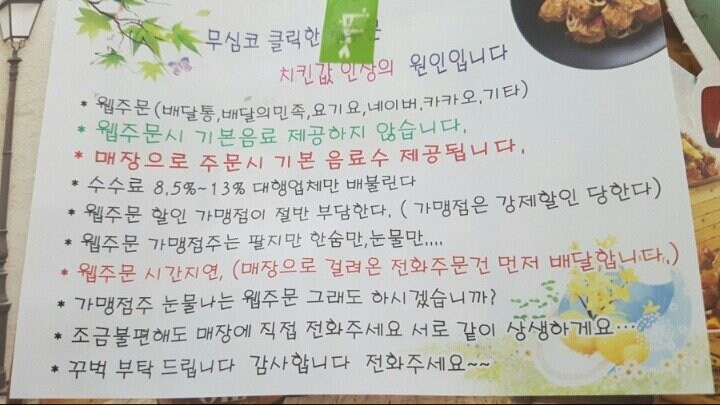 무심코 클릭한
치킨값 인상의 원인입니다
* 웹주문(배달통,배달의민족,요기요,네이버,카카오,기타)
* 웹주문시 기본음료 제공하지 않습니다.
* 매장으로 주문시 기본 음료수 제공됩니다.
* 수수료 8.5%~13% 대행업체만 배불린다
* 웹주문 할인 가맹점이 절반 부담한다. ( 가맹점은 강제할인 당한다)
* 웹주문 가맹점주는 팔지만 한숨만,눈물만....
* 웹주문 시간지연, (매장으로 걸려온 전화주문건 먼저 배달합니다.)
* 가맹점주 눈물나는 웹주문 그래도 하시겠습니까?
* 조금불편해도 매장에 직접 전화주세요 서로 같이 상생하게요...
* 꾸벅 부탁 드립니다 감사합니다 전화주세요~~